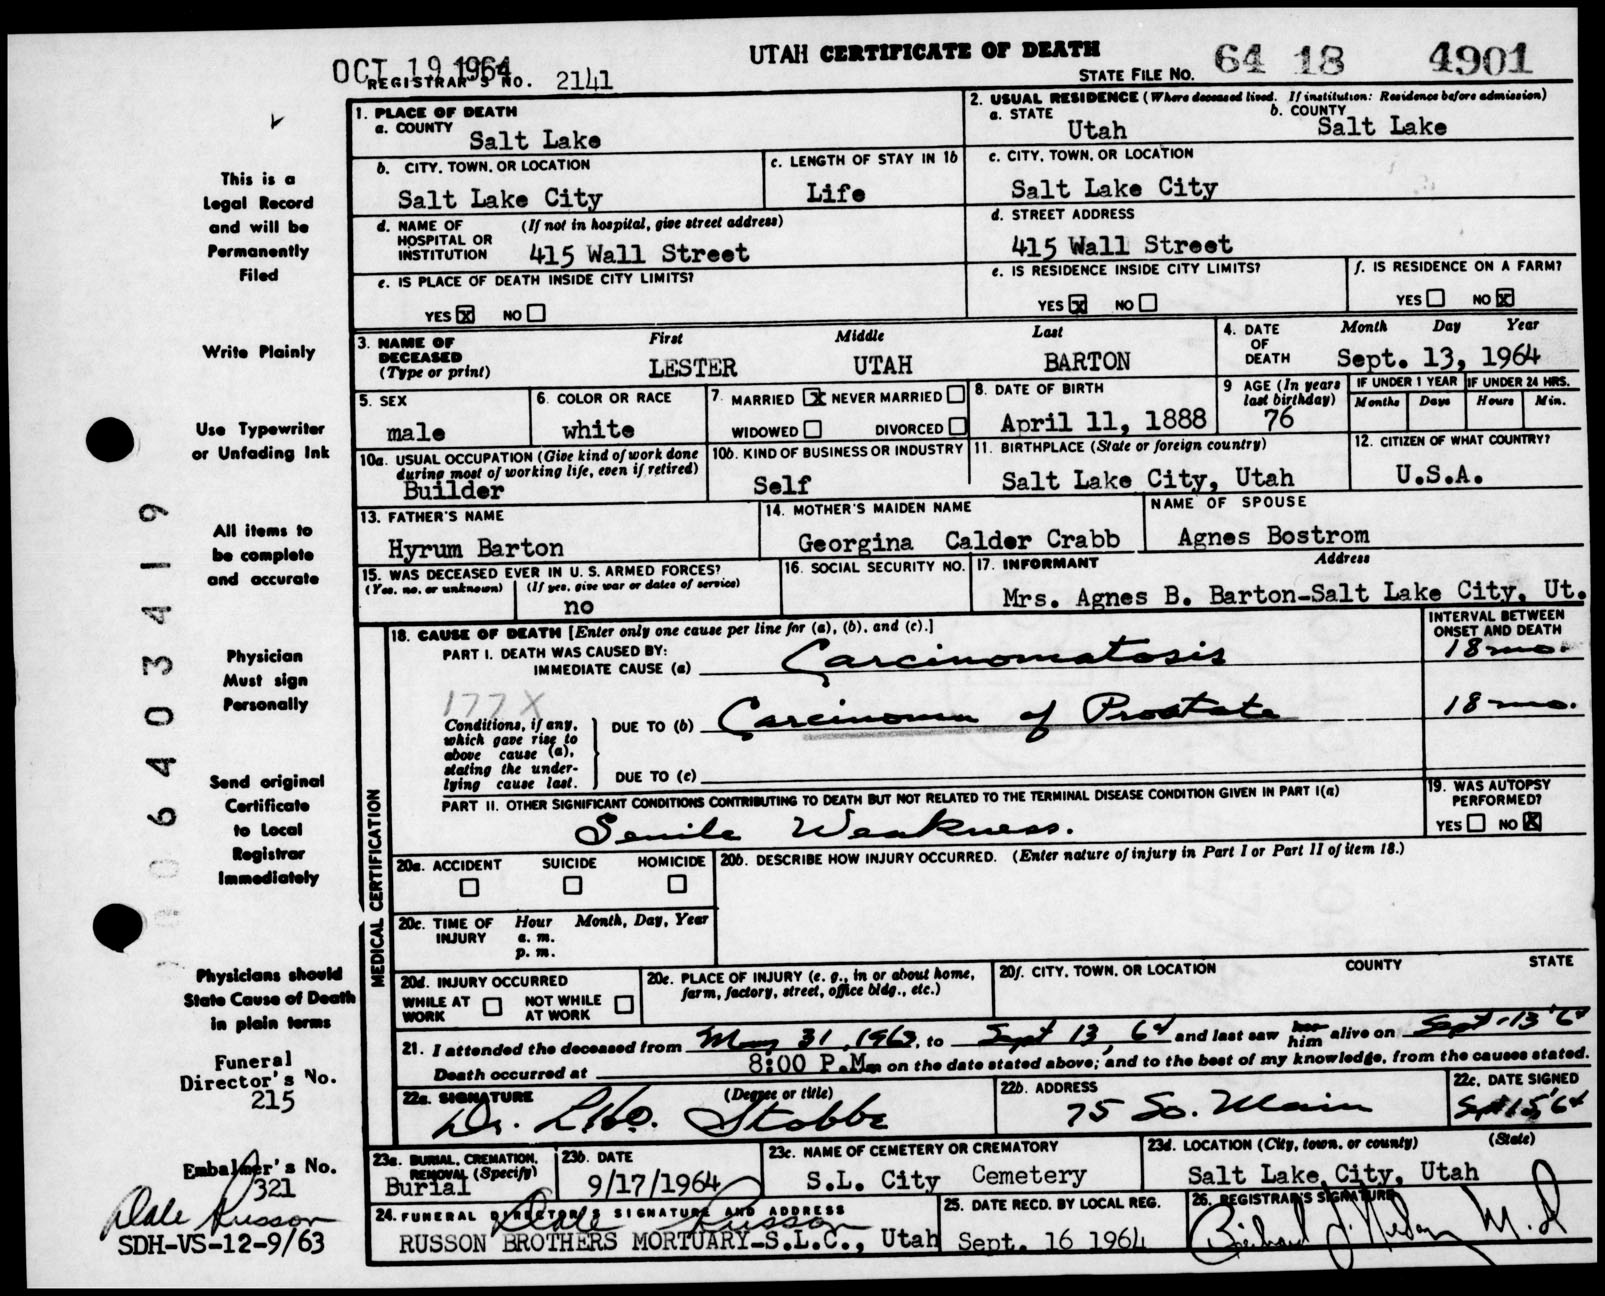 UTAH CERTIFICATE OF DEATH
OCT 19 1964
REGISTRAR'S NO. 2141
STATE FILE NO. 64 18 4901
1. PLACE OF DEATH
a. COUNTY Salt Lake
2. USUAL RESIDENCE (Where deceased lived. If institution: Residence before admission)
a. STATE Utah b. COUNTY Salt Lake
b. CITY, TOWN, OR LOCATION Salt Lake City
c. LENGTH OF STAY IN 1b Life
c. CITY, TOWN, OR LOCATION Salt Lake City
d. NAME OF HOSPITAL OR INSTITUTION (If not in hospital, give street address) 415 Wall Street
d. STREET ADDRESS 415 Wall Street
e. IS PLACE OF DEATH INSIDE CITY LIMITS?
YES x NO
e. IS RESIDENCE INSIDE CITY LIMITS?
YES x NO
f. IS RESIDENCE ON A FARM?
YES NO x
3. NAME OF DECEASED (Type or print)
First Middle Last
LESTER UTAH BARTON
4. DATE OF DEATH Month Day Year
Sept. 13, 1964
5. SEX male
6. COLOR OR RACE white
7. MARRIED x NEVER MARRIED
WIDOWED DIVORCED
8. DATE OF BIRTH April 11, 1888
9 AGE (In years last birthday) 76
IF UNDER 1 YEAR Months Days
IF UNDER 24 HRS. Hours Min.
10a. USUAL OCCUPATION (Give kind of work done during most of working life, even if retired)
Builder
10b. KIND OF BUSINESS OR INDUSTRY
Self
11. BIRTHPLACE (State or foreign country)
Salt Lake City, Utah
12. CITIZEN OF WHAT COUNTRY?
U.S.A.
13. FATHER'S NAME
Hyrum Barton
14. MOTHER'S MAIDEN NAME
Georgina Calder Crabb
NAME OF SPOUSE
Agnes Bostrom
15. WAS DECEASED EVER IN U. S. ARMED FORCES?
(Yes, no, or unknown) (If yes, give war or dates of service)
no
16. SOCIAL SECURITY NO.
17. INFORMANT Address
Mrs. Agnes B. Barton-Salt Lake City, Ut.
MEDICAL CERTIFICATION
18. CAUSE OF DEATH [Enter only one cause per line for (a), (b), and (c).]
INTERVAL BETWEEN ONSET AND DEATH
PART I. DEATH WAS CAUSED BY:
IMMEDIATE CAUSE (a) Carcinomatosis 18 mo.
177X
Conditions, if any, which gave rise to above cause (a), stating the underlying cause last.
DUE TO (b) Carcinoma of Prostate 18 mo.
DUE TO (c)
PART II. OTHER SIGNIFICANT CONDITIONS CONTRIBUTING TO DEATH BUT NOT RELATED TO THE TERMINAL DISEASE CONDITION GIVEN IN PART I(a)
Senile Weakness.
19. WAS AUTOPSY PERFORMED?
YES NO x
20a. ACCIDENT SUICIDE HOMICIDE
20b. DESCRIBE HOW INJURY OCCURRED. (Enter nature of injury in Part I or Part II of item 18.)
20c. TIME OF INJURY Hour Month, Day, Year
a. m.
p. m.
20d. INJURY OCCURRED
WHILE AT WORK NOT WHILE AT WORK
20e. PLACE OF INJURY (e. g., in or about home, farm, factory, street, office bldg., etc.)
20f. CITY, TOWN, OR LOCATION COUNTY STATE
21. I attended the deceased from May 31, 1962, to Sept 13, 64 and last saw her him alive on Sept-13 '64
Death occurred at 8:00 P.M. m on the date stated above; and to the best of my knowledge, from the causes stated.
22a. SIGNATURE (Degree or title)
Dr. Stobbe
22b. ADDRESS
75 So. Main
22c. DATE SIGNED
Sept 15 '64
23a. BURIAL, CREMATION, REMOVAL (Specify)
Burial
23b. DATE
9/17/1964
23c. NAME OF CEMETERY OR CREMATORY
S.L. City Cemetery
23d. LOCATION (City, town, or county) (State)
Salt Lake City, Utah
24. FUNERAL DIRECTOR'S SIGNATURE AND ADDRESS
Dale Russon
RUSSON BROTHERS MORTUARY-S.L.C., Utah
25. DATE RECD. BY LOCAL REG.
Sept. 16 1964
26. REGISTRAR'S SIGNATURE
M.D
This is a
Legal Record
and will be
Permanently
Filed
Write Plainly
Use Typewriter
or Unfading Ink
All items to
be complete
and accurate
Physician
Must sign
Personally
Send original
Certificate
to Local
Registrar
Immediately
Physicians should
State Cause of Death
in plain terms
Funeral
Director's No.
215
Embalmer's No.
321
Dale Russon
SDH-VS-12-9/63
006403419